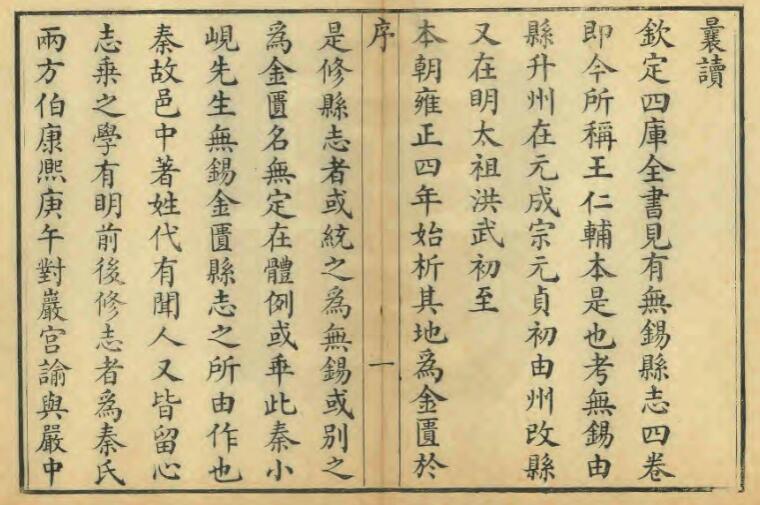 曩讀
欽定四庫全書見有無錫縣志四卷
即今所稱王仁輔本是也考無錫由
縣升州在元成宗元貞初由州改縣
又在明太祖洪武初至
本朝雍正四年始析其地為金匱於
序 一
是修縣志者或統之為無錫或別之
為金匱名無定在體例或乖此秦小
峴先生無錫金匱縣志之所由作也
秦故邑中著姓代有聞人又皆留心
志乘之學有明前後修志者為秦氏
兩方伯康熙庚午對巖宮諭與嚴中